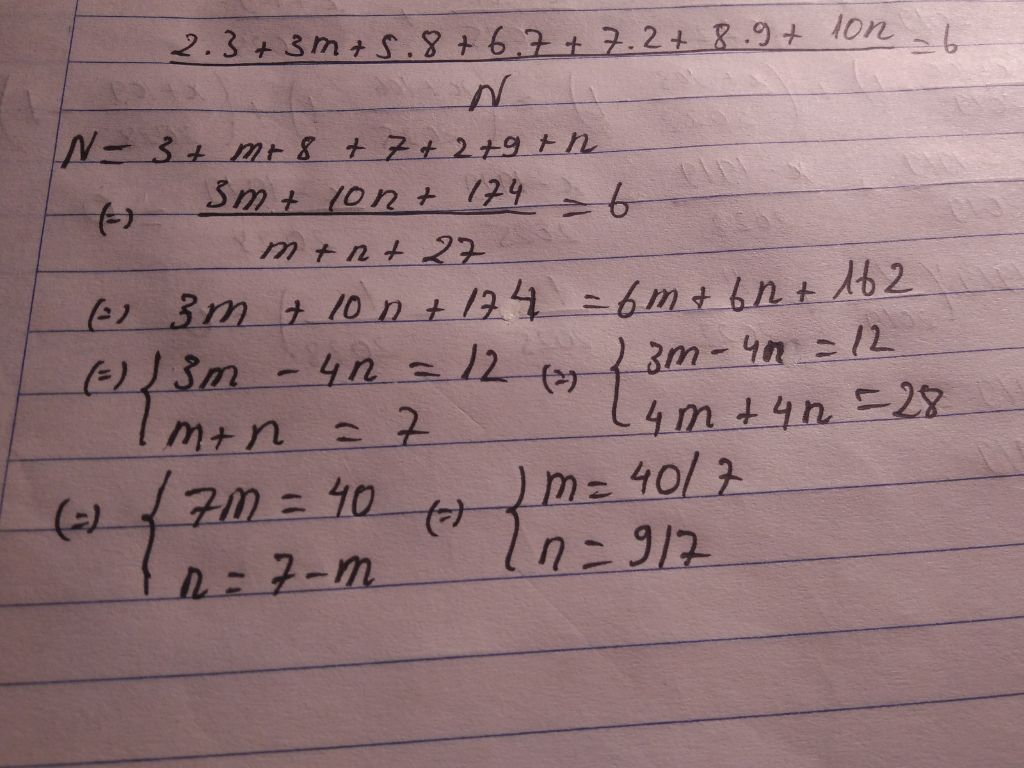 2.3 + 3m + 5.8 + 6.7 + 7.2 + 8.9 + 10n = 6
N
N = 3 + m + 8 + 7 + 2 + 9 + n
(=) 3m + 10n + 174 = 6
m + n + 27
(=) 3m + 10n + 174 = 6m + 6n + 162
(=) { 3m - 4n = 12 (=) { 3m - 4n = 12
m + n = 7 4m + 4n = 28
(=) { 7m = 40 (=) { m = 40/7
n = 7 - m n = 9/7